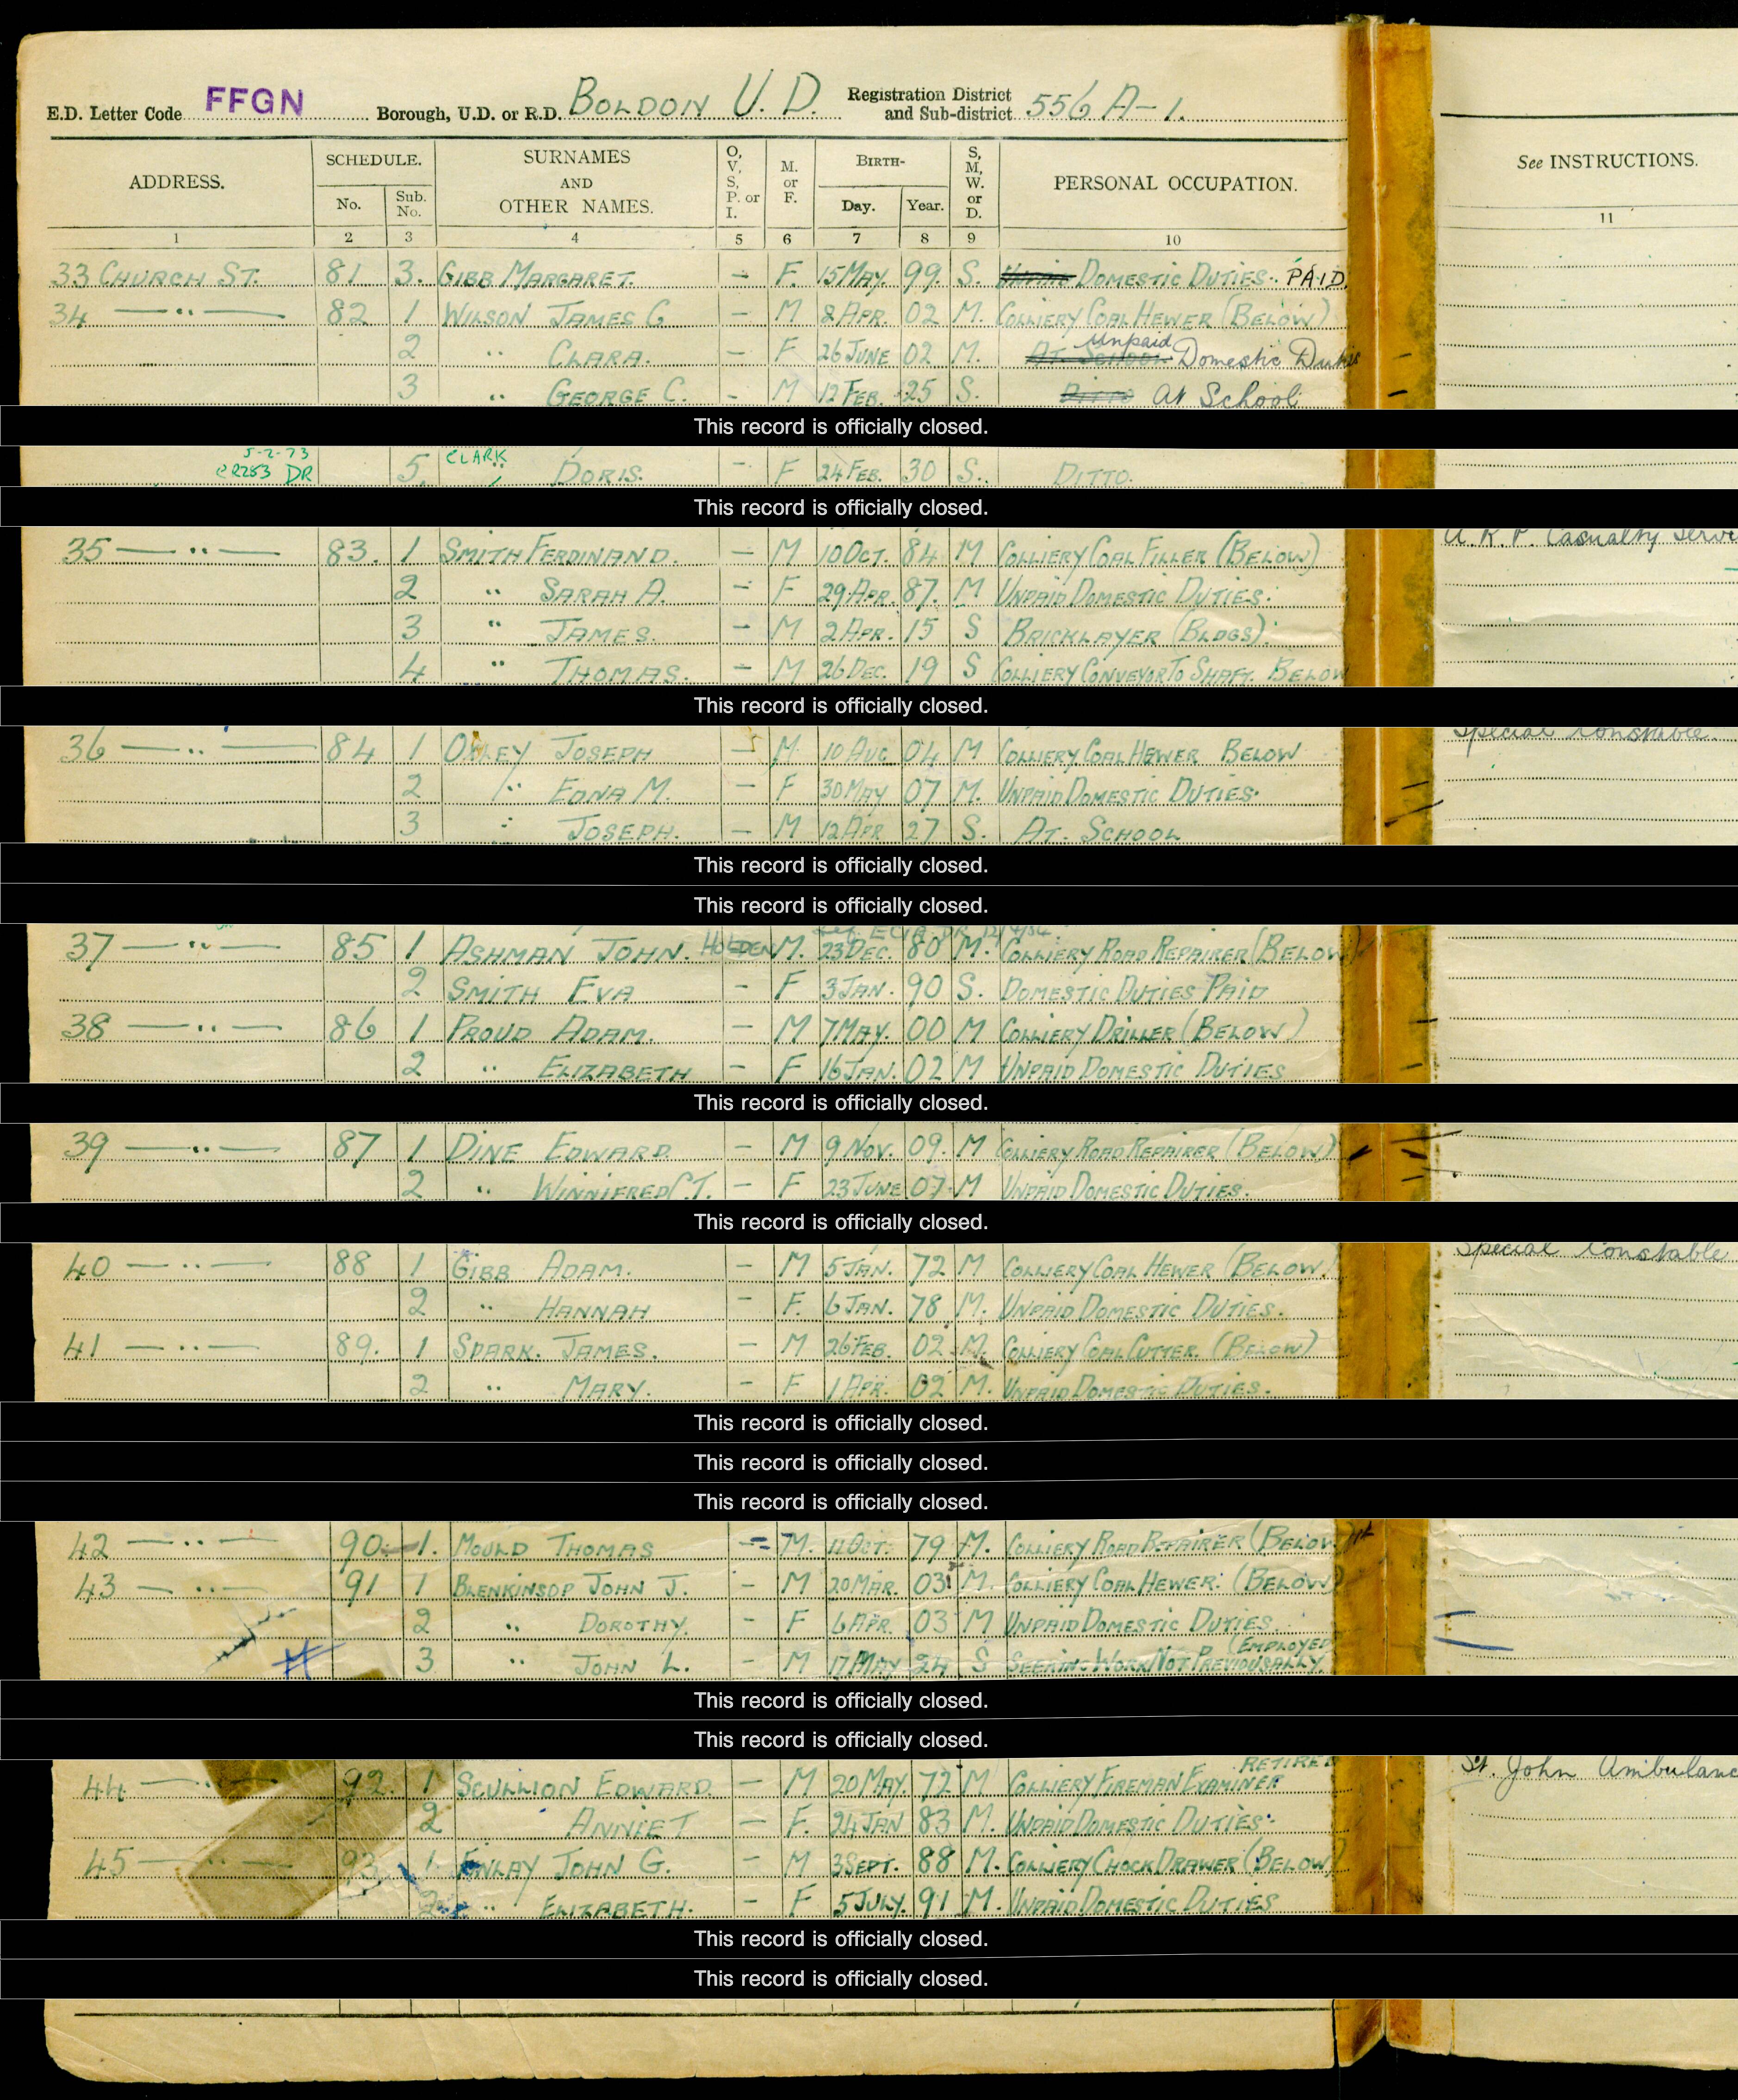 E.D. Letter Code FFGN Borough, U.D. or R.D. BOLDON U. D. Registration District and Sub-district 556 A-1.
ADDRESS. SCHEDULE. No. Sub. No. SURNAMES AND OTHER NAMES. O, V, S, P. or I. M. or F. BIRTH- Day. Year. S, M, W. or D. PERSONAL OCCUPATION. See INSTRUCTIONS.
1 2 3 4 5 6 7 8 9 10 11
33 CHURCH ST. 81 3. GIBB MARGARET. – F. 15 MAY. 99. S. DOMESTIC DUTIES. PAID.
34 — " — 82 1 WILSON JAMES G – M 8 APR. 02 M. COLLIERY COAL HEWER (BELOW)
2 " CLARA. – F 26 JUNE 02 M. Unpaid Domestic Duties
3 " GEORGE C. – M 12 FEB. 25 S. At School
This record is officially closed.
5-2-73 CLARK
CR283 DR 5. " DORIS. – F 24 FEB. 30 S. DITTO.
This record is officially closed.
A.R.P. Casualty Servi
35 — " — 83. 1 SMITH FERDINAND. – M 10 OCT. 84 M COLLIERY COAL FILLER (BELOW)
2 " SARAH A. – F 29 APR. 87. M UNPAID DOMESTIC DUTIES.
3 " JAMES. – M 2 APR. 15 S BRICKLAYER (BLDGS).
4 " THOMAS. – M 26 DEC. 19 S COLLIERY CONVEYOR TO SHAFT. BELOW
This record is officially closed.
Special Constable.
36 — " — 84 1 JOSEPH – M 10 AUG 04 M COLLIERY COAL HEWER BELOW
2 " EDNA M. – F 30 MAY 07 M. UNPAID DOMESTIC DUTIES.
3 " JOSEPH. – M 12 APR 27 S. AT. SCHOOL
This record is officially closed.
This record is officially closed.
37 — " — 85 1 ASHMAN JOHN. HOLDEN M. 23 DEC. 80 M. COLLIERY ROAD REPAIRER (BELOW)
2 SMITH EVA – F 3 JAN. 90 S. DOMESTIC DUTIES PAID
38 — " — 86 1 PROUD ADAM. – M 7 MAY. 00 M COLLIERY DRILLER (BELOW)
2 " ELIZABETH – F 16 JAN. 02 M UNPAID DOMESTIC DUTIES
This record is officially closed.
39 — " — 87 1 DINE EDWARD – M 9 NOV. 09. M COLLIERY ROAD REPAIRER (BELOW)
2 " WINNIFRED C.T. – F 23 JUNE 07 M UNPAID DOMESTIC DUTIES.
This record is officially closed.
Special Constable
40 — " — 88 1 GIBB ADAM. – M 5 JAN. 72 M COLLIERY COAL HEWER (BELOW)
2 " HANNAH – F. 6 JAN. 78 M. UNPAID DOMESTIC DUTIES.
41 — " — 89. 1 SPARK. JAMES. – M 26 FEB. 02. M. COLLIERY COAL CUTTER. (BELOW)
2 " MARY. – F 1 APR. 02 M. UNPAID DOMESTIC DUTIES.
This record is officially closed.
This record is officially closed.
This record is officially closed.
42 — " — 90 1. MOULD THOMAS – M. 11 OCT. 79 M. COLLIERY ROAD REPAIRER (BELOW
43 — " — 91 1 BLENKINSOP JOHN J. – M 20 MAR. 03 M. COLLIERY COAL HEWER. (BELOW)
2 " DOROTHY. – F 6 APR. 03 M UNPAID DOMESTIC DUTIES.
3 " JOHN L. – M 17 MAY 24 S SEEKING WORK NOT PREVIOUSALLY (EMPLOYED
This record is officially closed.
This record is officially closed.
44 — " — 92. 1 SCULLION EDWARD. – M 20 MAY. 72 M COLLIERY FIREMAN EXAMINER RETIRED St. John Ambulanc
2 ANNIE T – F. 24 JAN 83 M. UNPAID DOMESTIC DUTIES.
45 — " — 93 1. FINLAY JOHN G. – M 3 SEPT. 88 M. COLLIERY CHOCK DRAWER (BELOW)
2 " ELIZABETH. – F 5 JULY. 91 M. UNPAID DOMESTIC DUTIES
This record is officially closed.
This record is officially closed.